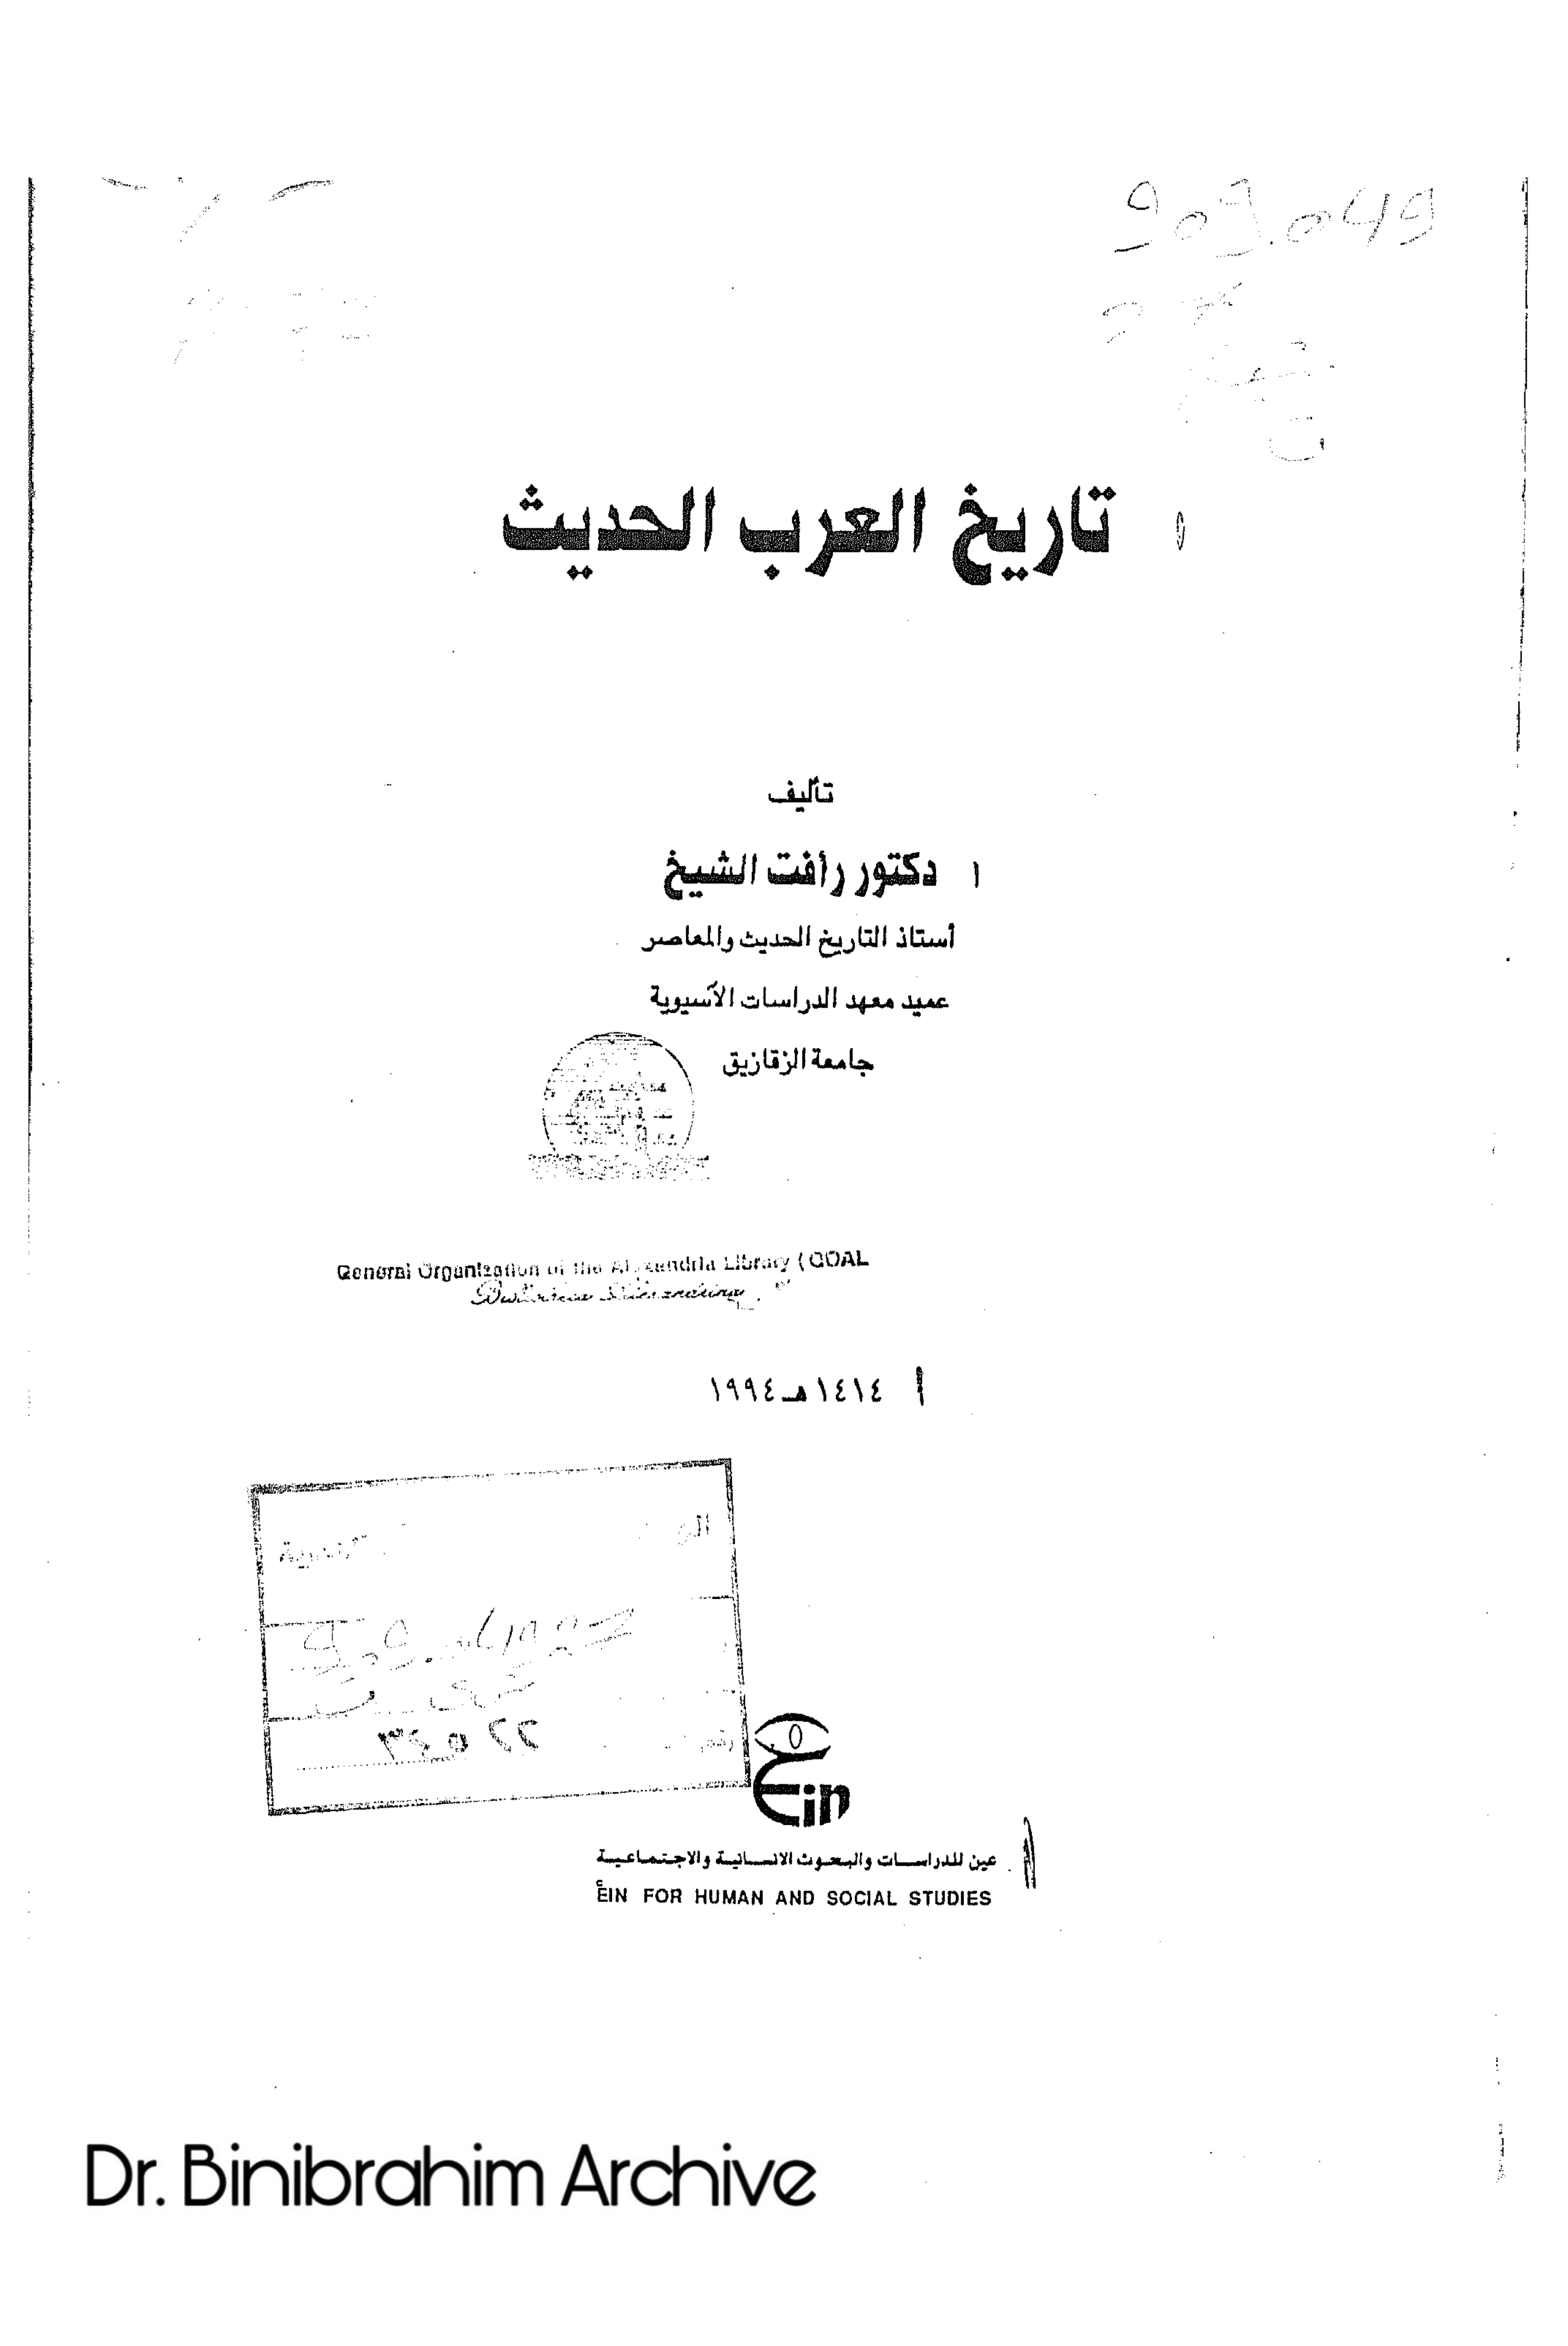 909.049
تاريخ العرب الحديث
تأليف
دكتور رأفت الشيخ
أستاذ التاريخ الحديث والمعاصر
عميد معهد الدراسات الآسيوية
جامعة الزقازيق
General Organization of the Alexandria Library (GOAL
١٤١٤هـ ١٩٩٤
Ein
عين للدراسات والبحوث الانسانية والاجتماعية
EIN FOR HUMAN AND SOCIAL STUDIES
Dr. Binibrahim Archive